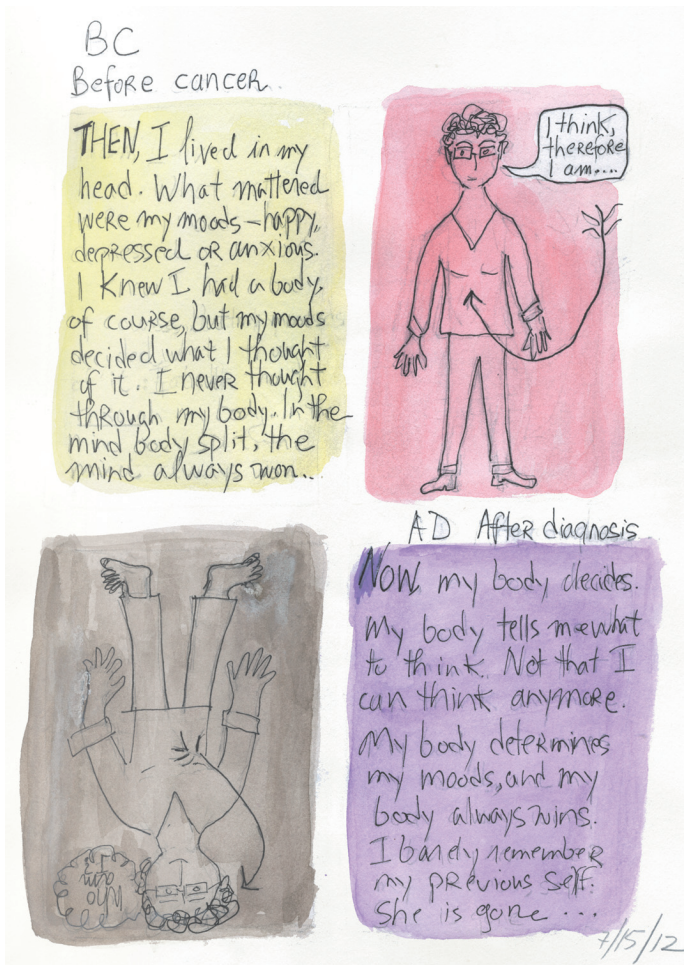 BC
Before cancer.
THEN, I lived in my
head. What mattered
were my moods – happy,
depressed or anxious.
I knew I had a body,
of course, but my moods
decided what I thought
of it. I never thought
through my body. In the
mind body split, the
mind always won...
I think,
therefore
I am....
Who
am
I?
AD After diagnosis
NOW, my body decides.
My body tells me what
to think. Not that I
can think anymore.
My body determines
my moods, and my
body always wins.
I barely remember
my previous self.
She is gone ...
7/15/12